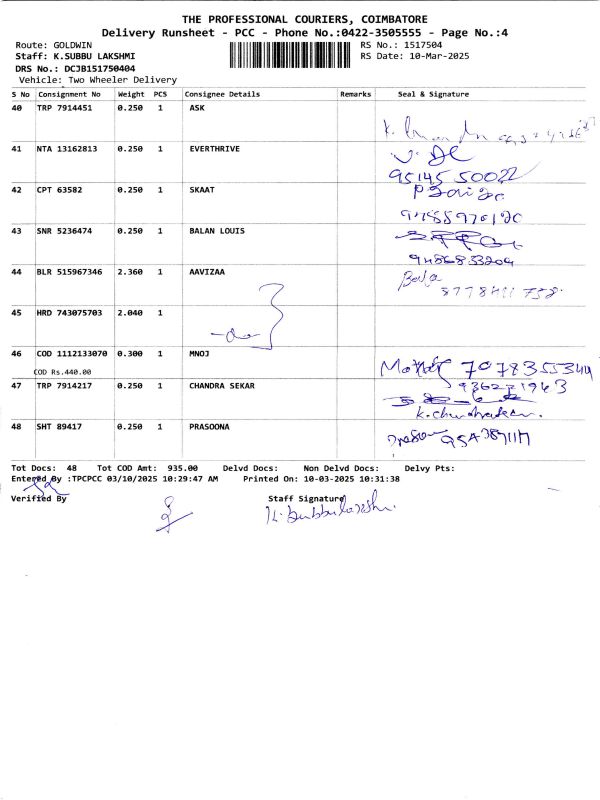 THE PROFESSIONAL COURIERS, COIMBATORE
Delivery Runsheet - PCC - Phone No.:0422-3505555 - Page No.:4
Route: GOLDWIN RS No.: 1517504
Staff: K.SUBBU LAKSHMI RS Date: 10-Mar-2025
DRS No.: DCJB151750404
Vehicle: Two Wheeler Delivery
S No Consignment No Weight PCS Consignee Details Remarks Seal & Signature
40 TRP 7914451 0.250 1 ASK
41 NTA 13162813 0.250 1 EVERTHRIVE
95145 50022
42 CPT 63582 0.250 1 SKAAT
43 SNR 5236474 0.250 1 BALAN LOUIS
9486833204
44 BLR 515967346 2.360 1 AAVIZAA
Bala
45 HRD 743075703 2.040 1
-do-
46 COD 1112133070 0.300 1 MNOJ
COD Rs.440.00
47 TRP 7914217 0.250 1 CHANDRA SEKAR
48 SHT 89417 0.250 1 PRASOONA
Tot Docs: 48 Tot COD Amt: 935.00 Delvd Docs: Non Delvd Docs: Delvy Pts:
Entered By :TPCPCC 03/10/2025 10:29:47 AM Printed On: 10-03-2025 10:31:38
Verified By Staff Signature
K. Subbulakshmi